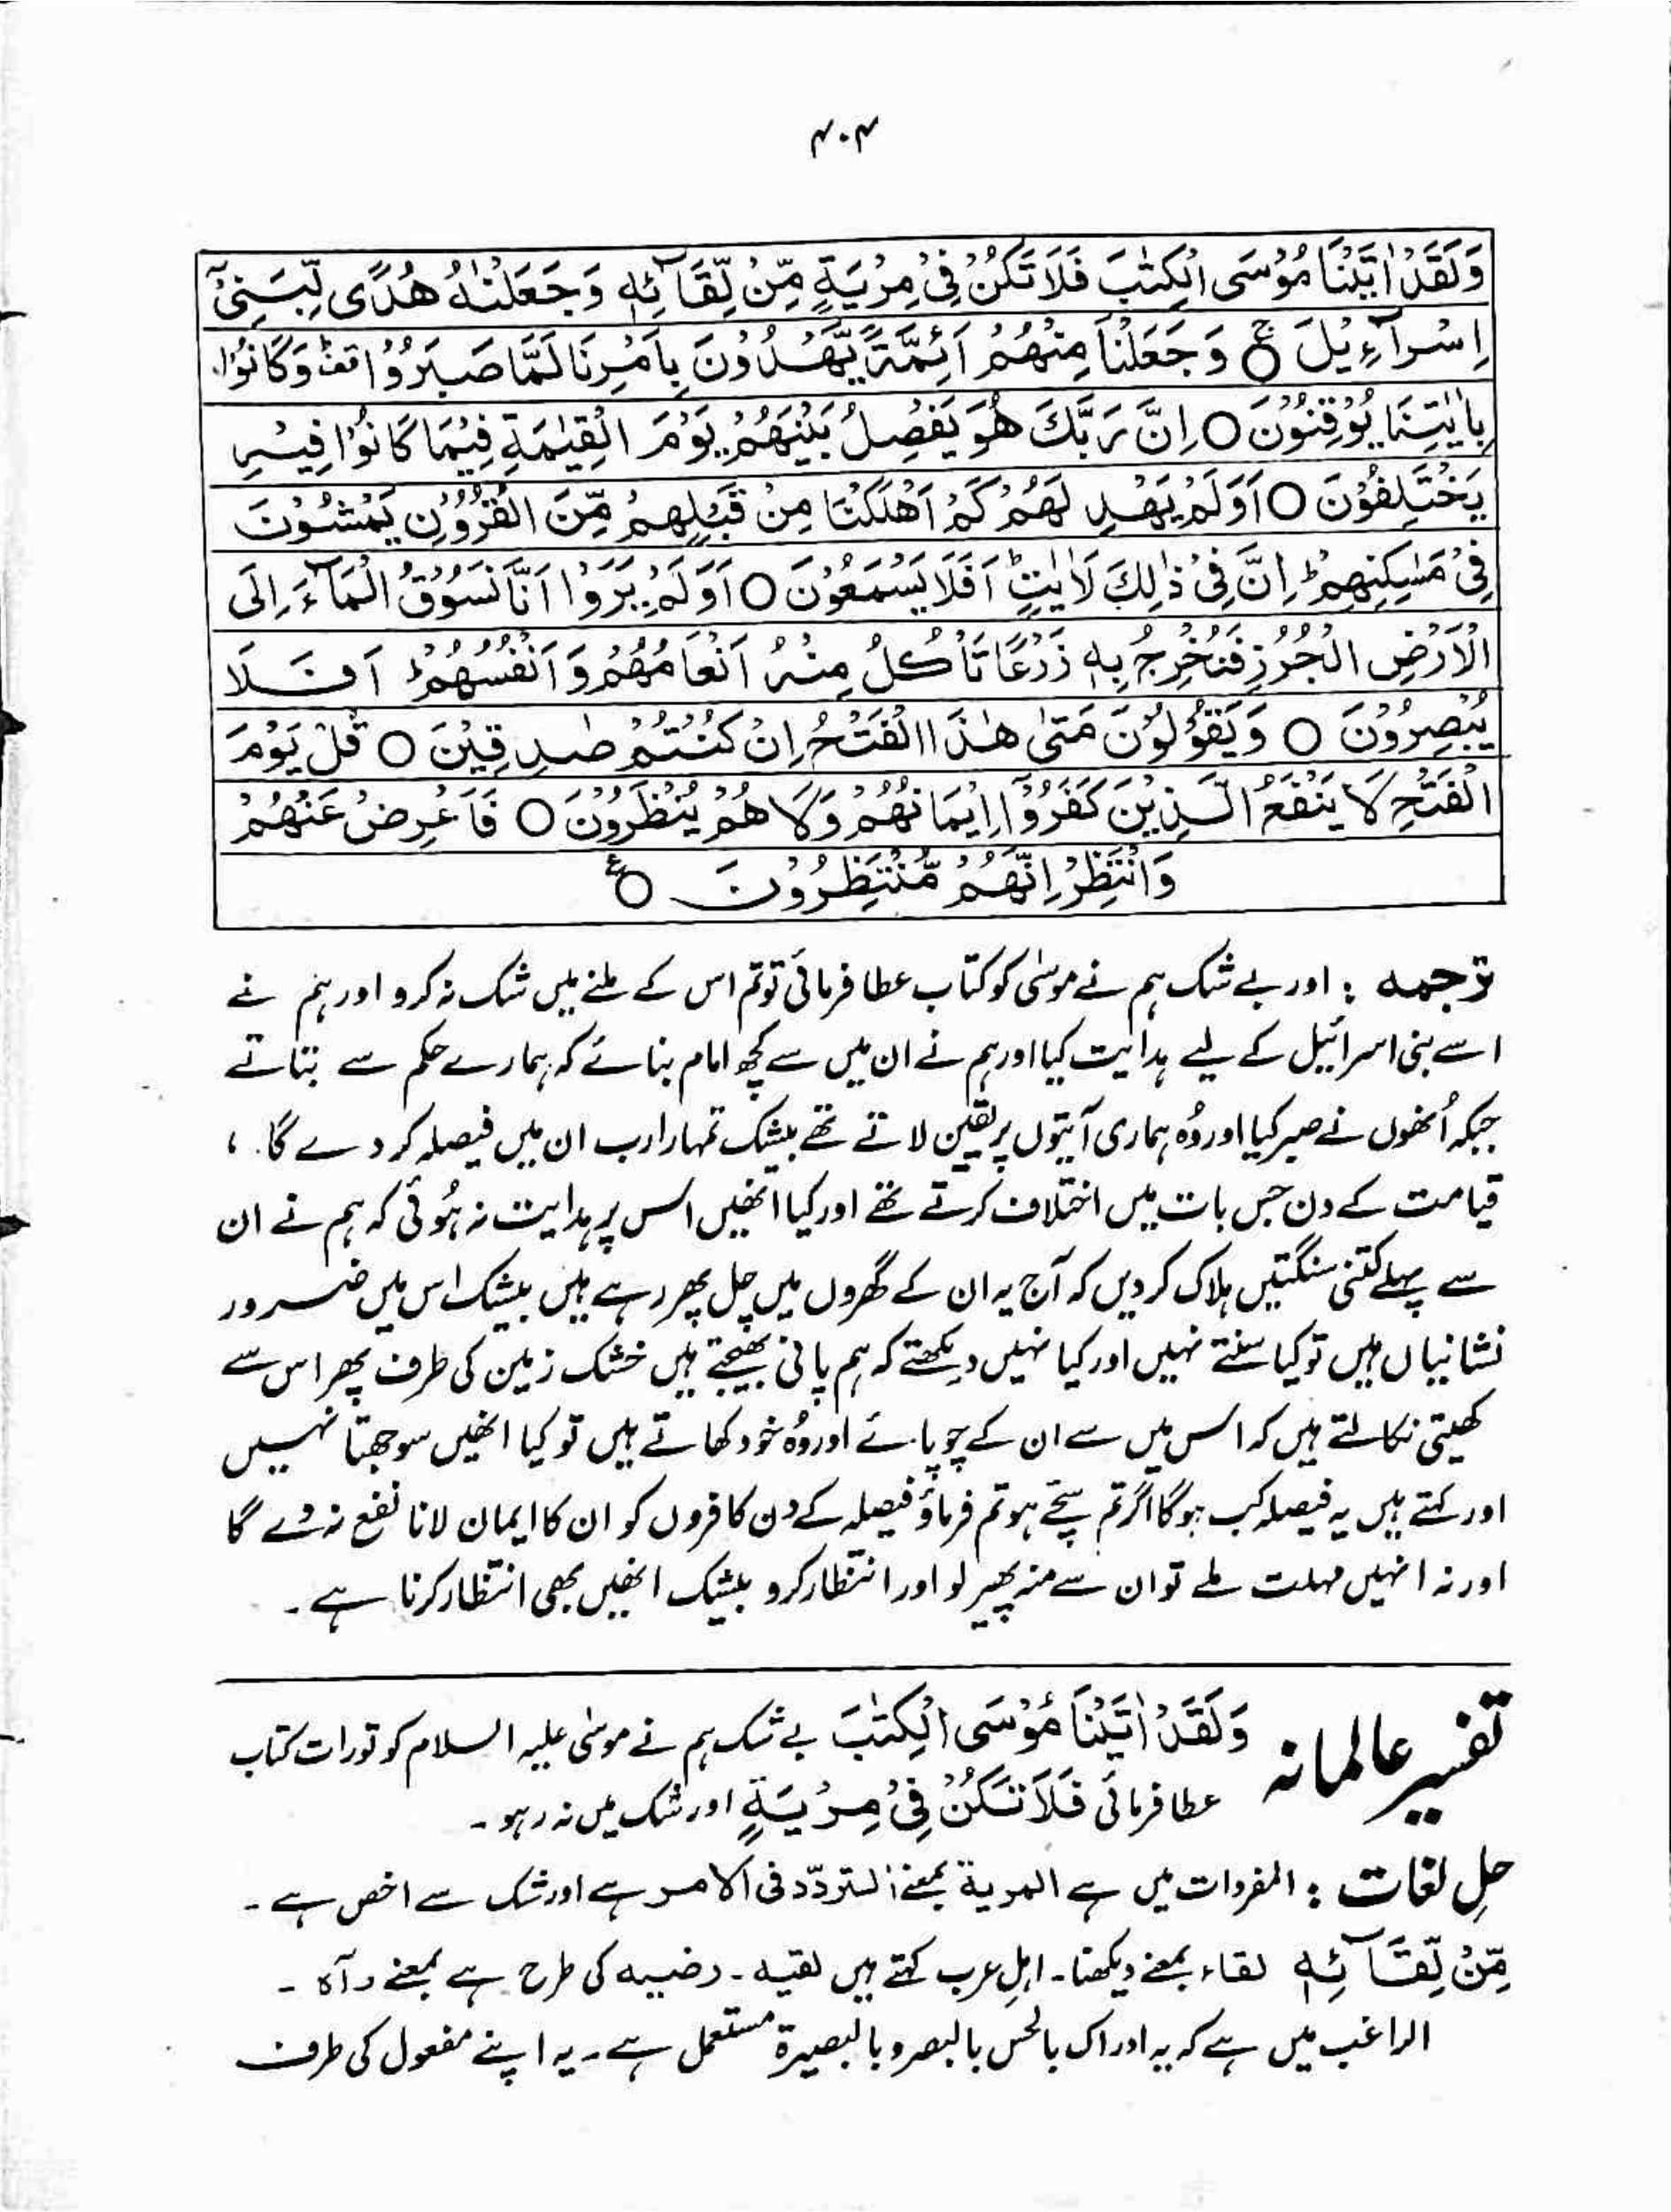 ۴۰۴
وَلَقَدْ اٰتَیْنَا مُوْسَی الْکِتٰبَ فَلَا تَکُنْ فِیْ مِرْیَةٍ مِّنْ لِّقَآئِهٖ وَجَعَلْنٰهُ هُدًی لِّبَنِیْٓ
اِسْرَآءِیْلَ ○ج وَجَعَلْنَا مِنْهُمْ اَئِمَّةً یَّهْدُوْنَ بِاَمْرِنَا لَمَّا صَبَرُوْا قف وَکَانُوْا
بِاٰیٰتِنَا یُوْقِنُوْنَ ○ اِنَّ رَبَّكَ هُوَ یَفْصِلُ بَیْنَهُمْ یَوْمَ الْقِیٰمَةِ فِیْمَا کَانُوْا فِیْهِ
یَخْتَلِفُوْنَ ○ اَوَلَمْ یَهْدِ لَهُمْ کَمْ اَهْلَکْنَا مِنْ قَبْلِهِمْ مِّنَ الْقُرُوْنِ یَمْشُوْنَ
فِیْ مَسٰکِنِهِمْ ؕ اِنَّ فِیْ ذٰلِكَ لَاٰیٰتٍ ؕ اَفَلَا یَسْمَعُوْنَ ○ اَوَلَمْ یَرَوْا اَنَّا نَسُوْقُ الْمَآءَ اِلَی
الْاَرْضِ الْجُرُزِ فَنُخْرِجُ بِهٖ زَرْعًا تَاْکُلُ مِنْهُ اَنْعَامُهُمْ وَاَنْفُسُهُمْ ؕ اَفَلَا
یُبْصِرُوْنَ ○ وَیَقُوْلُوْنَ مَتٰی هٰذَا الْفَتْحُ اِنْ کُنْتُمْ صٰدِقِیْنَ ○ قُلْ یَوْمَ
الْفَتْحِ لَا یَنْفَعُ الَّذِیْنَ کَفَرُوْٓا اِیْمَانُهُمْ وَلَا هُمْ یُنْظَرُوْنَ ○ فَاَعْرِضْ عَنْهُمْ
وَانْتَظِرْ اِنَّهُمْ مُّنْتَظِرُوْنَ ○ع
ترجمہ : اور بے شک ہم نے موسٰی کو کتاب عطا فرمائی تو تم اس کے ملنے میں شک نہ کرو اور ہم نے
اسے بنی اسرائیل کے لیے ہدایت کیا اور ہم نے ان میں سے کچھ امام بنائے کہ ہمارے حکم سے بتاتے
جبکہ اُنھوں نے صبر کیا اور وُہ ہماری آیتوں پر یقین لاتے تھے بیشک تمہارا رب ان میں فیصلہ کر دے گا ،
قیامت کے دن جس بات میں اختلاف کرتے تھے اور کیا انھیں اس پر ہدایت نہ ہُوئی کہ ہم نے ان
سے پہلے کتنی سنگتیں ہلاک کر دیں کہ آج یہ ان کے گھروں میں چل پھر رہے ہیں بیشک اس میں ضرور
نشانیاں ہیں تو کیا سنتے نہیں اور کیا نہیں دیکھتے کہ ہم پانی بھیجتے ہیں خشک زمین کی طرف پھر اس سے
کھیتی نکالتے ہیں کہ اس میں سے ان کے چوپائے اور وُہ خود کھاتے ہیں تو کیا انھیں سوجھتا نہیں
اور کہتے ہیں یہ فیصلہ کب ہوگا اگر تم سچّے ہو تم فرماؤ فیصلہ کے دن کافروں کو ان کا ایمان لانا نفع نہ دے گا
اور نہ انہیں مہلت ملے تو ان سے منہ پھیر لو اور انتظار کرو بیشک انھیں بھی انتظار کرنا ہے ۔
تفسیر عالمانہ وَلَقَدْ اٰتَیْنَا مُوْسَی الْکِتٰبَ بے شک ہم نے موسٰی علیہ السلام کو تورات کتاب
عطا فرمائی فَلَا تَکُنْ فِیْ مِرْیَةٍ اور شک میں نہ رہو ۔
حلِ لغات : المفردات میں ہے المریۃ بمعنے التردّد فی الامر ہے اور شک سے اخص ہے ۔
مِّنْ لِّقَآئِهٖ لقاء بمعنے دیکھنا ۔ اہلِ عرب کہتے ہیں لقیہ ۔ رضیہ کی طرح ہے بمعنے رآہ ۔
الراغب میں ہے کہ یہ ادراک بالحس بالبصر و بالبصیرۃ مستعمل ہے ۔ یہ اپنے مفعول کی طرف